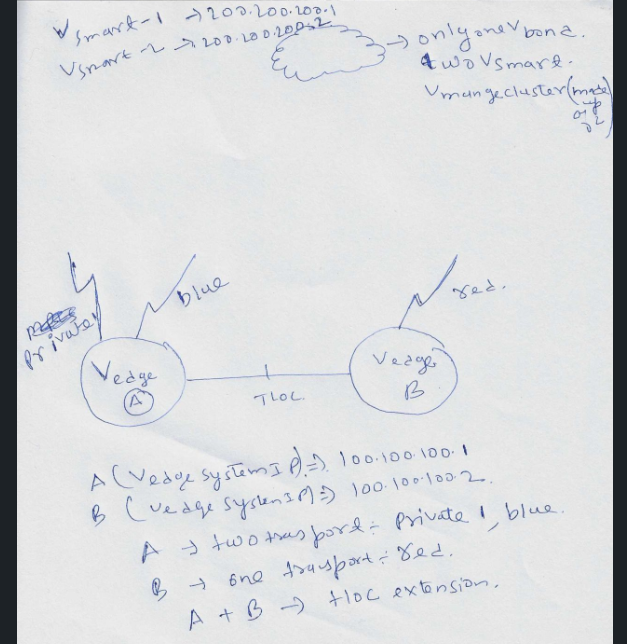 Vsmart-1 → 200.200.200.1
Vsmart-2 → 200.200.200.2
→ only one Vbond.
two Vsmart.
Vmangecluster (made
up
of
2)
private1
blue
red.
Vedge
A
TLOC
Vedge
B
A (Vedge system IP) => 100.100.100.1
B (Vedge system IP) => 100.100.100.2.
A → two transport ÷ private 1, blue.
B → one transport ÷ red.
A + B → tloc extension.